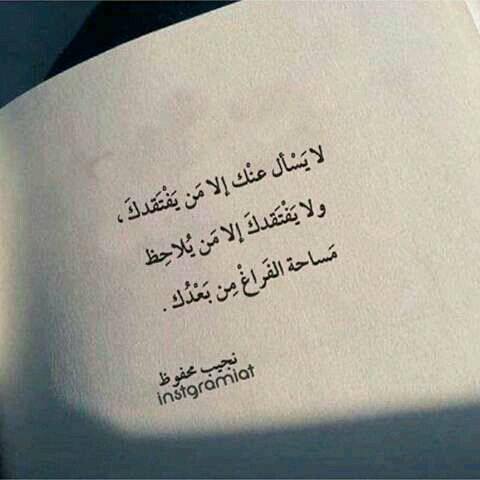 لا يَسْأل عنْك إلا مَن يَفْتَقدكَ،
ولا يَفْتَقدكَ إلا مَن يُلاحِظ
مَساحة الفَراغْ مِن بَعْدُك.
نجيب محفوظ
instgramiat